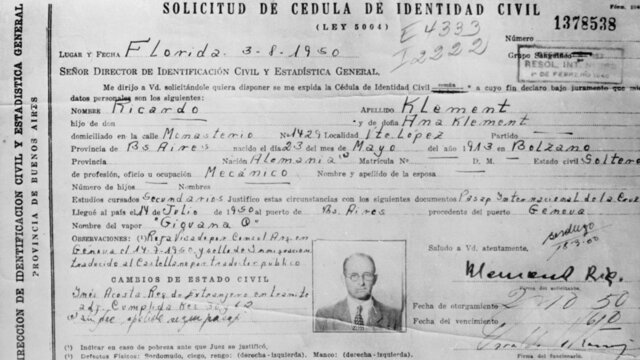 SOLICITUD DE CEDULA DE IDENTIDAD CIVIL
(LEY 5004)
1378538
Número
E 4333
I 2222
Grupo Sanguíneo
RESOL. INT.
FEBRERO
LUGAR Y FECHA Florida 3-8-1950
SEÑOR DIRECTOR DE IDENTIFICACIÓN CIVIL Y ESTADÍSTICA GENERAL.
Me dirijo a Vd. solicitándole quiera disponer se me expida la Cédula de Identidad Civil común a cuyo fin declaro bajo juramento que mis
datos personales son los siguientes:
NOMBRE Ricardo APELLIDO Klement
hijo de don y de doña Ana Klement
domiciliado en la calle Monasterio No 1429 Localidad Vte. López Partido
Provincia de Bs Aires nacido el día 23 del mes de Mayo del año 1913 en Bolzano
Provincia Nación Alemania Matrícula No D. M. Estado civil Soltero
de profesión, oficio u ocupación Mecánico Nombre y apellido de la esposa
Número de hijos Nombres
Estudios cursados Secundarios Justifico estas circunstancias con los siguientes documentos Pasap. Internacional de la Cruz
Llegué al país el 14 de Julio de 1950 al puerto de Bs. Aires procedente del puerto Genova
Nombre del vapor "Giovana C"
OBSERVACIONES: Roja Visado por Consul Arg. en
Genova el 14-7-1950 y sello de Inmigracion
traducido al Castellano por traductor publico
Saludo a Vd. atentamente,
CAMBIOS DE ESTADO CIVIL
Firma del solicitante.
Fecha de otorgamiento 2 10 50
Fecha de vencimiento
Firma del funcionario.
1) Indicar en caso de pobreza ante que Juez se justificó.
2) Defectos Físicos: Sordomudo, ciego, rengo: (derecha-izquierda). Manco: (derecha-izquierda)
DIRECCION DE IDENTIFICACION CIVIL Y ESTADISTICA GENERAL
PROVINCIA DE BUENOS AIRES